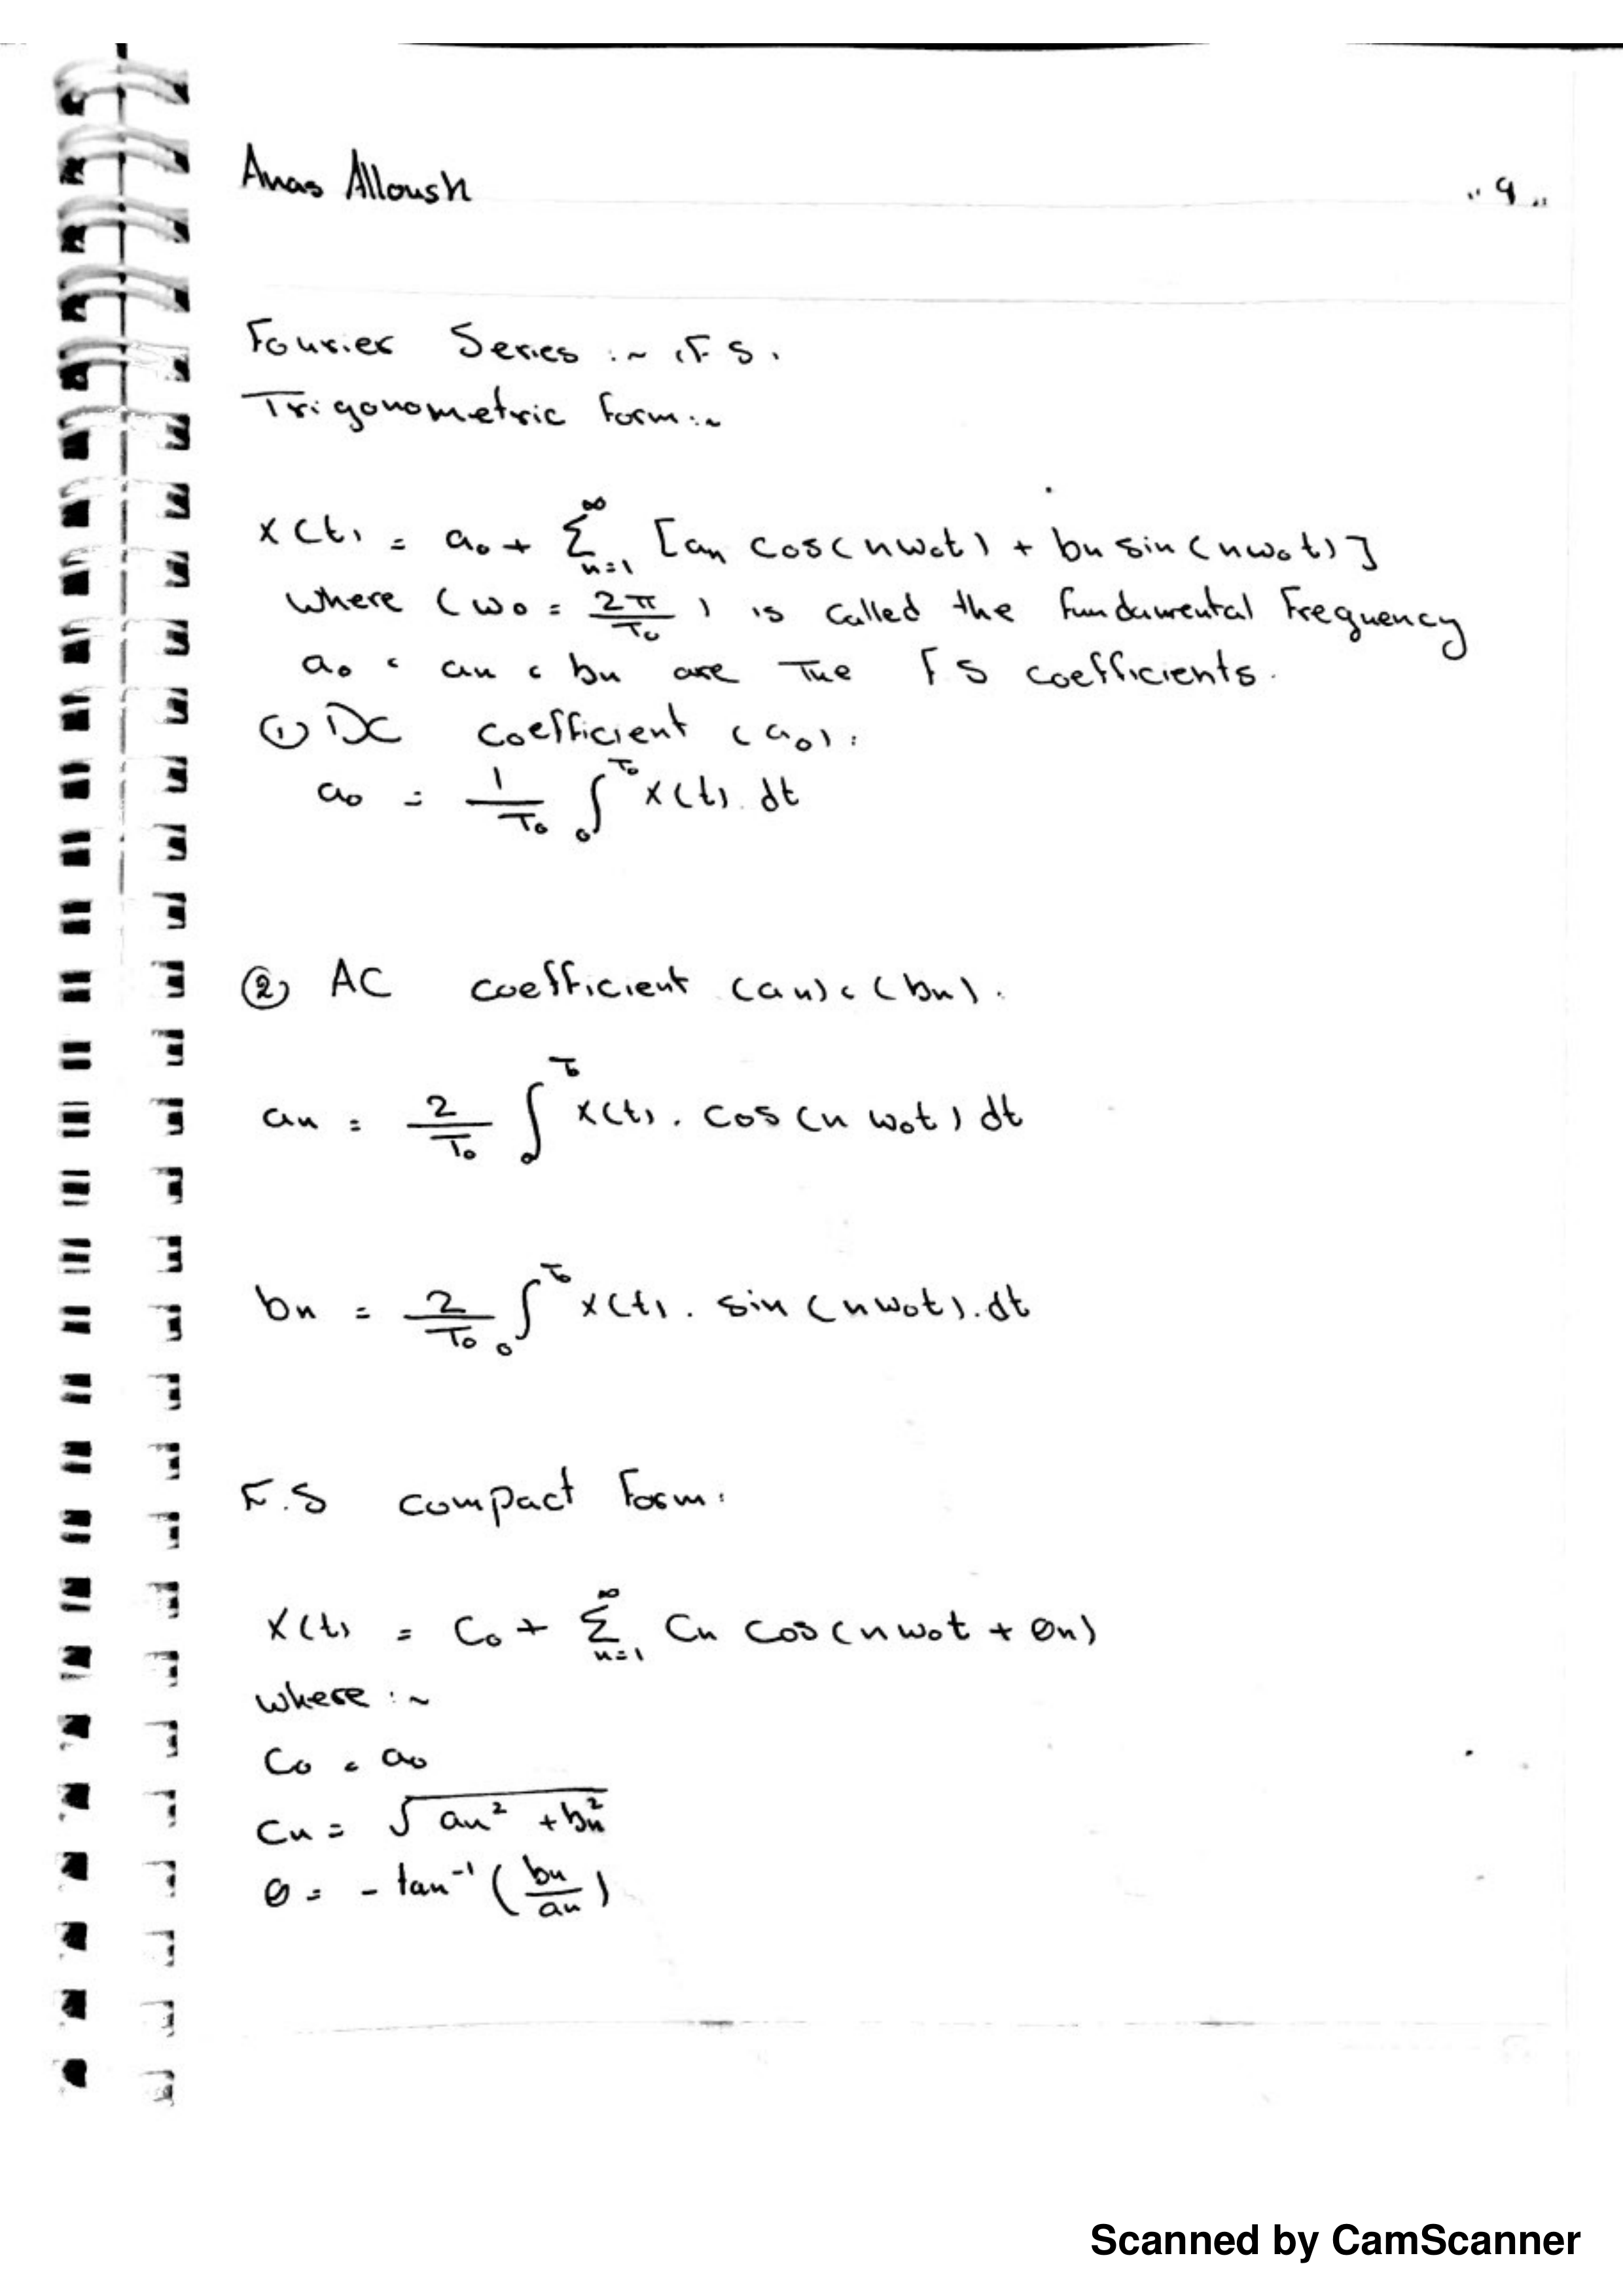 Anas Alloush "9"
Fourier Series :~ (F S)
Trigonometric form :~
x(t) = a₀ + ∞ Σ n=1 [an cos(nω₀t) + bn sin(nω₀t)]
where (ω₀ = 2π / T₀) is called the fundamental frequency
a₀ ، an ، bn are The FS coefficients.
① DC coefficient (a₀):
a₀ = 1 / T₀ ∫₀^T₀ x(t). dt
② AC coefficient (an) ، (bn).
an = 2 / T₀ ∫₀^T₀ x(t). cos(n ω₀t) dt
bn = 2 / T₀ ∫₀^T₀ x(t). sin(nω₀t). dt
F.S compact Form:
x(t) = C₀ + ∞ Σ n=1 Cn cos(nω₀t + θn)
where :~
C₀ = a₀
Cn = √(an² + bn²)
θ = - tan⁻¹ (bn / an)
Scanned by CamScanner